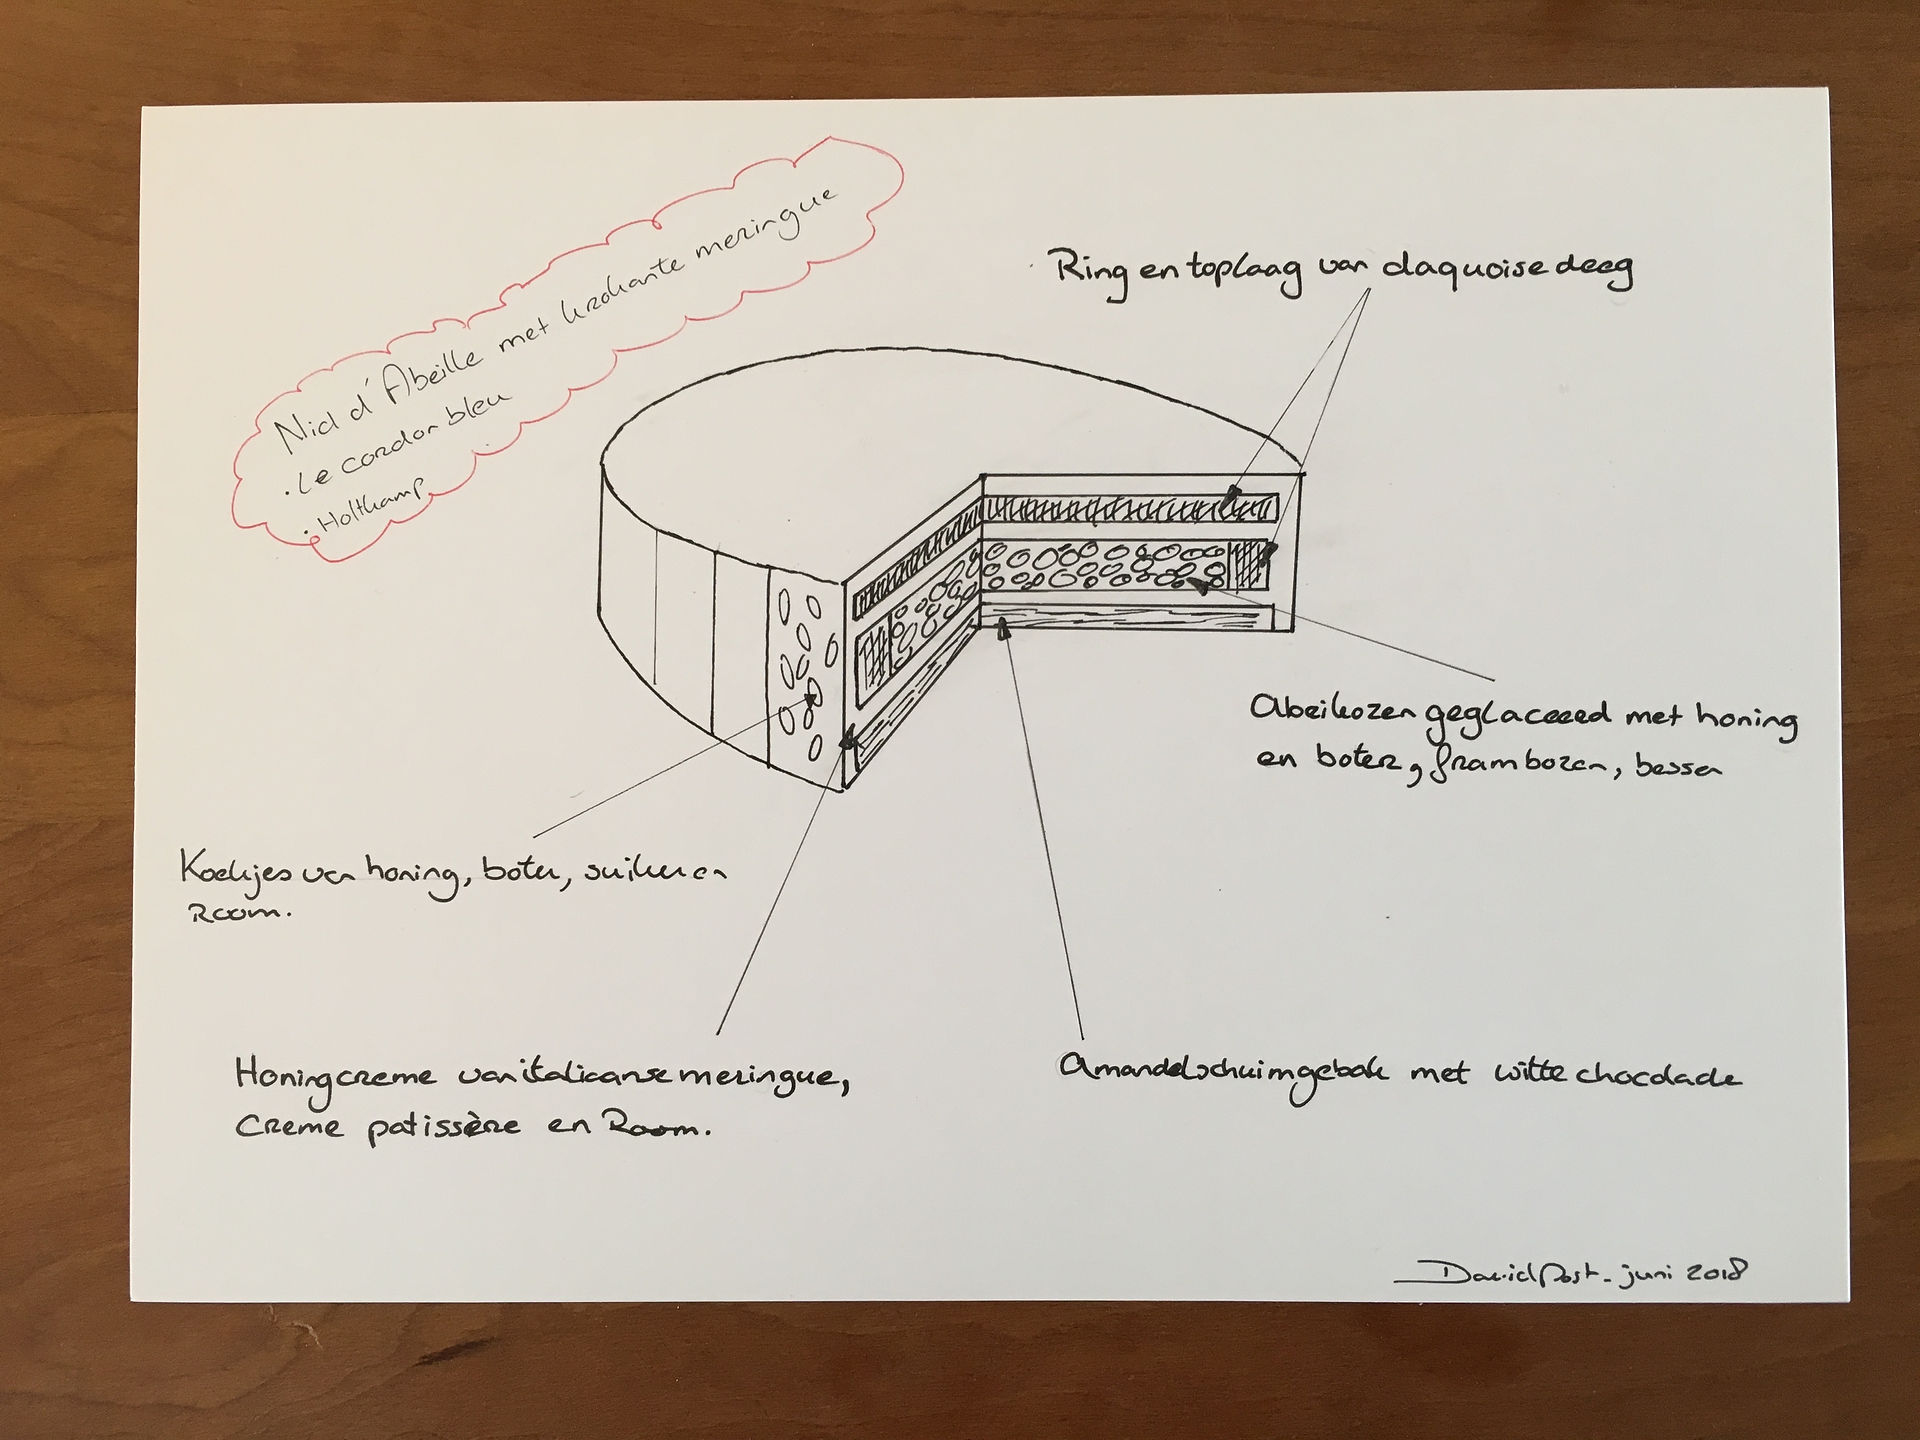 Nid d'Abeille met krokante meringue
. Le cordon bleu
. Holtkamp
Ring en toplaag van daquoise deeg
Abrikozen geglaceerd met honing
en boter, frambozen, bessen
Koekjes van honing, boter, suiker en
Room.
Honingcreme van italiaanse meringue,
Creme patissère en Room.
Amandelschuimgebak met witte chocolade
David Post - juni 2018